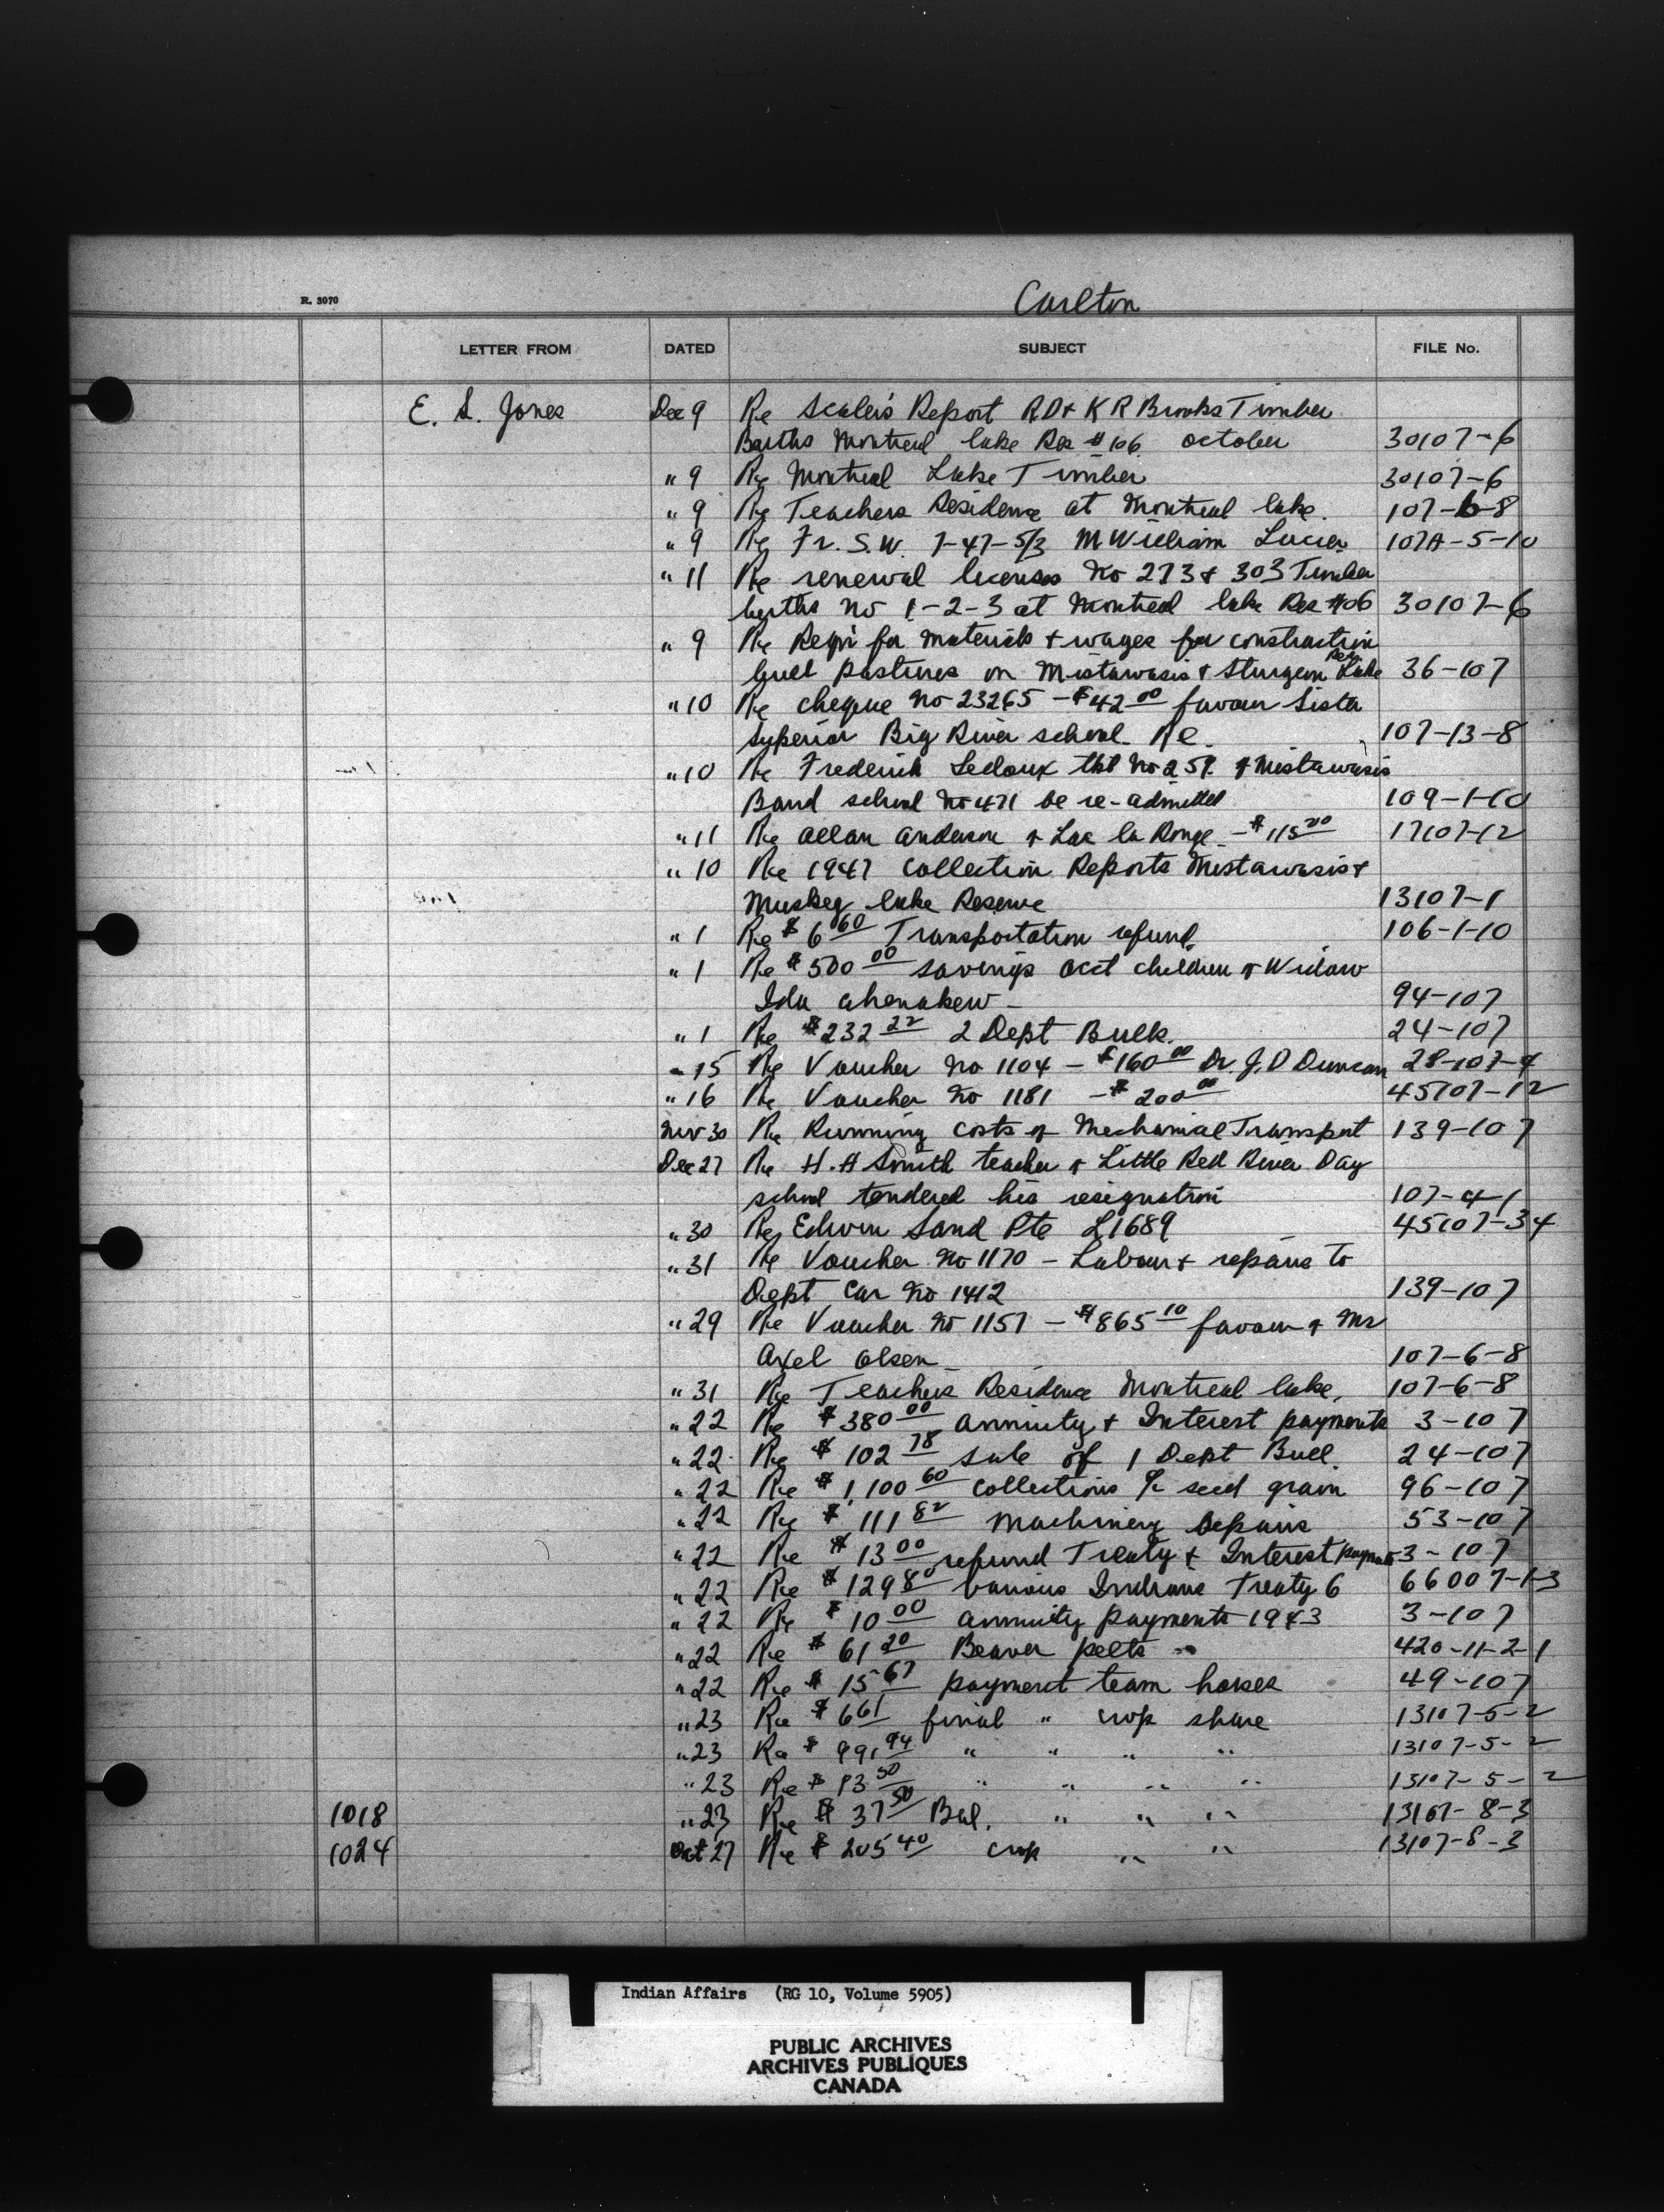 R. 3070
Carlton
LETTER FROM DATED SUBJECT FILE No.
E. S. Jones Dec 9 Re Scaler's Report R D + K R Brooks Timber
Berths Montreal lake Res #106 october 30107-6
" 9 Re Montreal Lake Timber 30107-6
" 9 Re Teachers Residence at Montreal lake. 107-6-8
" 9 Re Fr. S.W. 7-47-5/3 M William Lucier 107A-5-10
" 11 Re renewal licenses No 273 + 303 Timber
berths No 1-2-3 at Montreal lake Res #106 30107-6
" 9 Re Reqn for materials + wages for construction
bull pastures on Mistawasis + Sturgeon Lake Res. 36-107
" 10 Re cheque No 23265 - $42 00 favour Sister
Superior Big River school. Re. 107-13-8
" 10 Re Frederick Ledoux tkt No 251 of Mistawasis
Band school No 471 be re-admitted 109-1-10
" 11 Re Allan Anderson of Lac la Ronge - $115 00 17107-12
" 10 Re 1947 Collection Reports Mistawasis +
Muskeg lake Reserve 13107-1
" 1 Re $ 6 60 Transportation refund. 106-1-10
" 1 Re $ 500 00 savings acct children of Widow
Ida Ahenakew - 94-107
" 1 Re $232 22 2 Dept Bulls. 24-107
" 15 Re Voucher No 1104 - $160 00 Dr. J. D Duncan 28-107-4
" 16 Re Voucher No 1181 - $ 200 00 45107-12
Nov 30 Re Running costs of Mechanical Transport 139-107
Dec 27 Re H. A Smith teacher of Little Red River Day
school tendered his resignation 107-4-1
" 30 Re Edwin Sand Pte L1689 45107-34
" 31 Re Voucher No 1170 - Labour + repairs to
Dept Car No 1412 139-107
" 29 Re Voucher No 1157 - $865 10 favour of Mr
Axel Olsen - 107-6-8
" 31 Re Teachers Residence Montreal lake. 107-6-8
" 22 Re $ 380 00 annuity + Interest payments 3-107
" 22 Re $ 102 78 sale of 1 Dept Bull. 24-107
" 22 Re $ 1,100 60 collections % seed grain 96-107
" 22 Re $ 111 82 Machinery repairs 53-107
" 22 Re $ 13 00 refund Treaty + Interest payments 3-107
" 22 Re $ 129 80 various Indians Treaty 6 66007-1-3
" 22 Re $ 10 00 annuity payments 1943 3-107
" 22 Re $ 61 20 Beaver pelts - 420-11-2-1
" 22 Re $ 15 67 payment team horses 49-107
" 23 Re $ 6 61 final " crop share 13107-5-2
" 23 Re $ 991 94 " " " " 13107-5-2
" 23 Re $ 13 50 " " " " 13107-5-2
1018 " 23 Re $ 37 50 Bal. " " " 13107-8-3
1024 Oct 27 Re $ 205 40 crop " " 13107-8-3
Indian Affairs (RG 10, Volume 5905)
PUBLIC ARCHIVES
ARCHIVES PUBLIQUES
CANADA